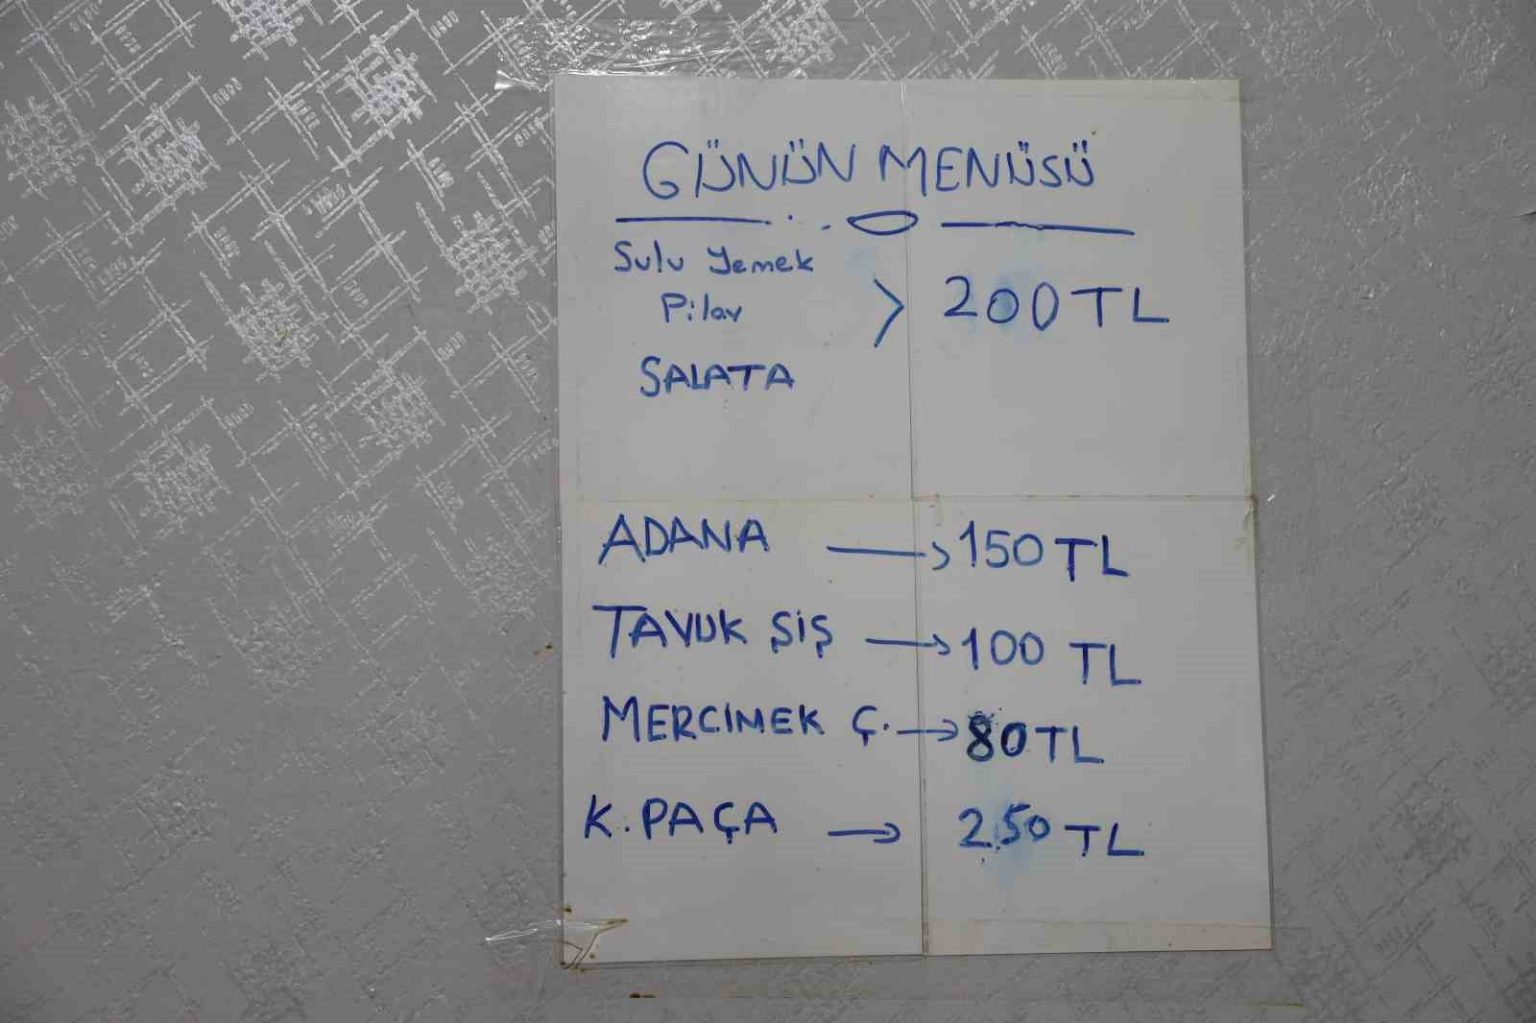 GÜNÜN MENÜSÜ
Sulu Yemek
Pilav > 200 TL
SALATA
ADANA → 150 TL
TAVUK ŞİŞ → 100 TL
MERCİMEK Ç. → 80 TL
K. PAÇA → 250 TL